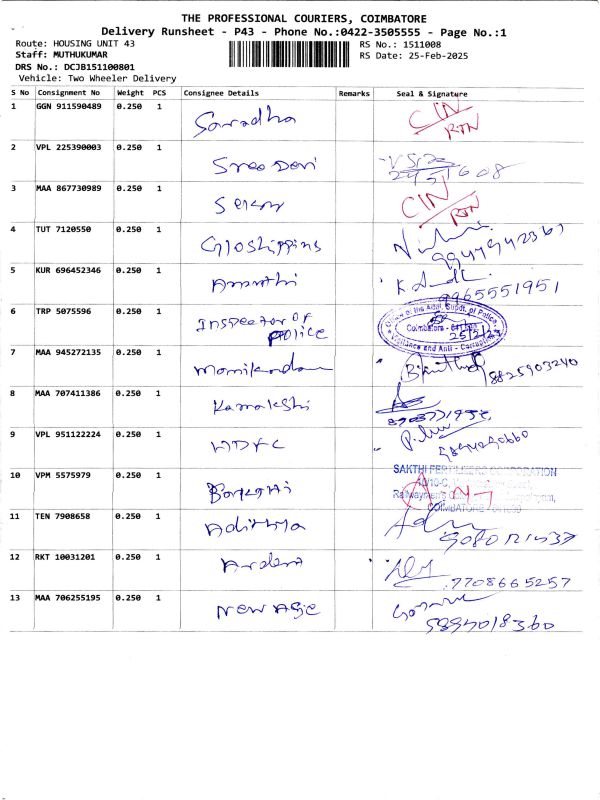 THE PROFESSIONAL COURIERS, COIMBATORE
Delivery Runsheet - P43 - Phone No.:0422-3505555 - Page No.:1
Route: HOUSING UNIT 43
RS No.: 1511008
Staff: MUTHUKUMAR
RS Date: 25-Feb-2025
DRS No.: DCJB151100801
Vehicle: Two Wheeler Delivery
S No Consignment No Weight PCS Consignee Details Remarks Seal & Signature
1 GGN 911590489 0.250 1 Saradha CIN/RTN
2 VPL 225390003 0.250 1 Sree Devi
3 MAA 867730989 0.250 1 Sekar CIN/RTN
4 TUT 7120550 0.250 1 Gloshippins
5 KUR 696452346 0.250 1 9965551951
6 TRP 5075596 0.250 1 Inspector of Police
Coimbatore
Vigilance and Anti - Corruption
7 MAA 945272135 0.250 1 8825903240
8 MAA 707411386 0.250 1 Kamakshi
9 VPL 951122224 0.250 1 HDFC
10 VPM 5575979 0.250 1
SAKTHI FERTILISERS CORPORATION
COIMBATORE
11 TEN 7908658 0.250 1 Adithya
12 RKT 10031201 0.250 1 7708665257
13 MAA 706255195 0.250 1 New Age